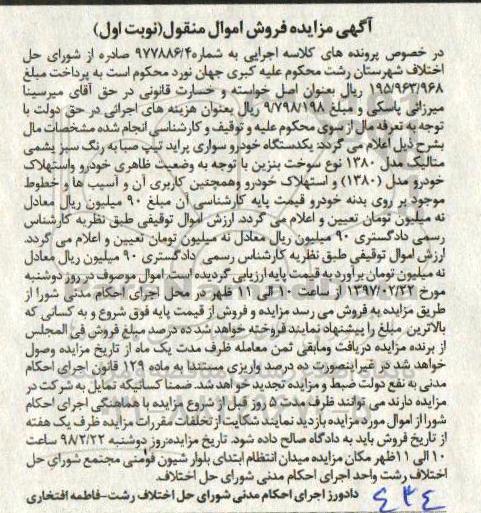 آگهی مزایده فروش اموال منقول(نوبت اول)
در خصوص پرونده های کلاسه اجرایی به شماره۹۷۷۸۸۶/۴ صادره از شورای حل
اختلاف شهرستان رشت محکوم علیه کبری جهان نورد محکوم است به پرداخت مبلغ
۱۹۵/۹۶۳/۹۶۸ ریال بعنوان اصل خواسته و خسارت قانونی در حق آقای میرسینا
میرزائی پاسکی و مبلغ ۹/۷۹۸/۱۹۸ ریال بعنوان هزینه های اجرائی در حق دولت با
توجه به تعرفه مال از سوی محکوم علیه و توقیف و کارشناسی انجام شده مشخصات مال
بشرح ذیل اعلام می گردد: یکدستگاه خودرو سواری پراید تیپ صبا به رنگ سبز یشمی
متالیک مدل ۱۳۸۰ نوع سوخت بنزین با توجه به وضعیت ظاهری خودرو واستهلاک
خودرو مدل (۱۳۸۰) و استهلاک خودرو وهمچنین کاربری آن و آسیب ها و خطوط
موجود بر روی بدنه خودرو قیمت پایه کارشناسی آن مبلغ ۹۰ میلیون ریال معادل
نه میلیون تومان تعیین و اعلام می گردد. ارزش اموال توقیفی طبق نظریه کارشناس
رسمی دادگستری ۹۰ میلیون ریال معادل نه میلیون تومان تعیین و اعلام می گردد.
ارزش اموال توقیفی طبق نظریه کارشناس رسمی دادگستری ۹۰ میلیون ریال معادل
نه میلیون تومان برآورد به قیمت پایه ارزیابی گردیده است. اموال موصوف در روز دوشنبه
مورخ ۱۳۹۷/۰۲/۲۲ از ساعت ۱۰ الی ۱۱ ظهر در محل اجرای احکام مدنی شورا از
طریق مزایده به فروش می رسد مزایده و فروش از قیمت پایه فوق شروع و به کسانی که
بالاترین مبلغ را پیشنهاد نمایند فروخته خواهد شد ده درصد مبلغ فروش فی المجلس
از برنده مزایده دریافت ومابقی ثمن معامله ظرف مدت یک ماه از تاریخ مزایده وصول
خواهد شد در غیر اینصورت ده درصد واریزی مستندا به ماده ۱۲۹ قانون اجرای احکام
مدنی به نفع دولت ضبط و مزایده تجدید خواهد شد. ضمنا کسانیکه تمایل به شرکت در
مزایده دارند می توانند ظرف مدت ۵ روز قبل از شروع مزایده با هماهنگی اجرای احکام
شورا از اموال مورد مزایده بازدید نمایند شکایت از تخلفات مقررات مزایده ظرف یک هفته
از تاریخ فروش باید به دادگاه صالح داده شود. تاریخ مزایده:روز دوشنبه ۹۸/۲/۲۲ ساعت
۱۰ الی ۱۱ظهر مکان مزایده میدان انتظام ابتدای بلوار شیون فومنی مجتمع شورای حل
اختلاف رشت واحد اجرای احکام مدنی شورای حل اختلاف.
دادورز اجرای احکام مدنی شورای حل اختلاف رشت-فاطمه افتخاری